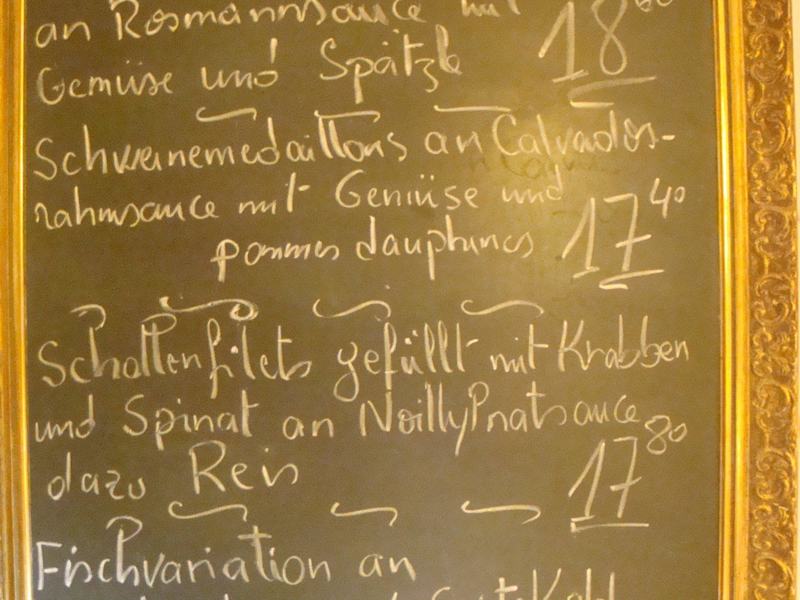 an Rosmarinsauce mit
Gemüse und Spätzle 18
Schweinemedaillons an Calvados-
rahmsauce mit Gemüse und
pommes dauphines 17 40
Schollenfilets gefüllt mit Krabben
und Spinat an NoillyPratsauce
dazu Reis 17 80
Fischvariation an